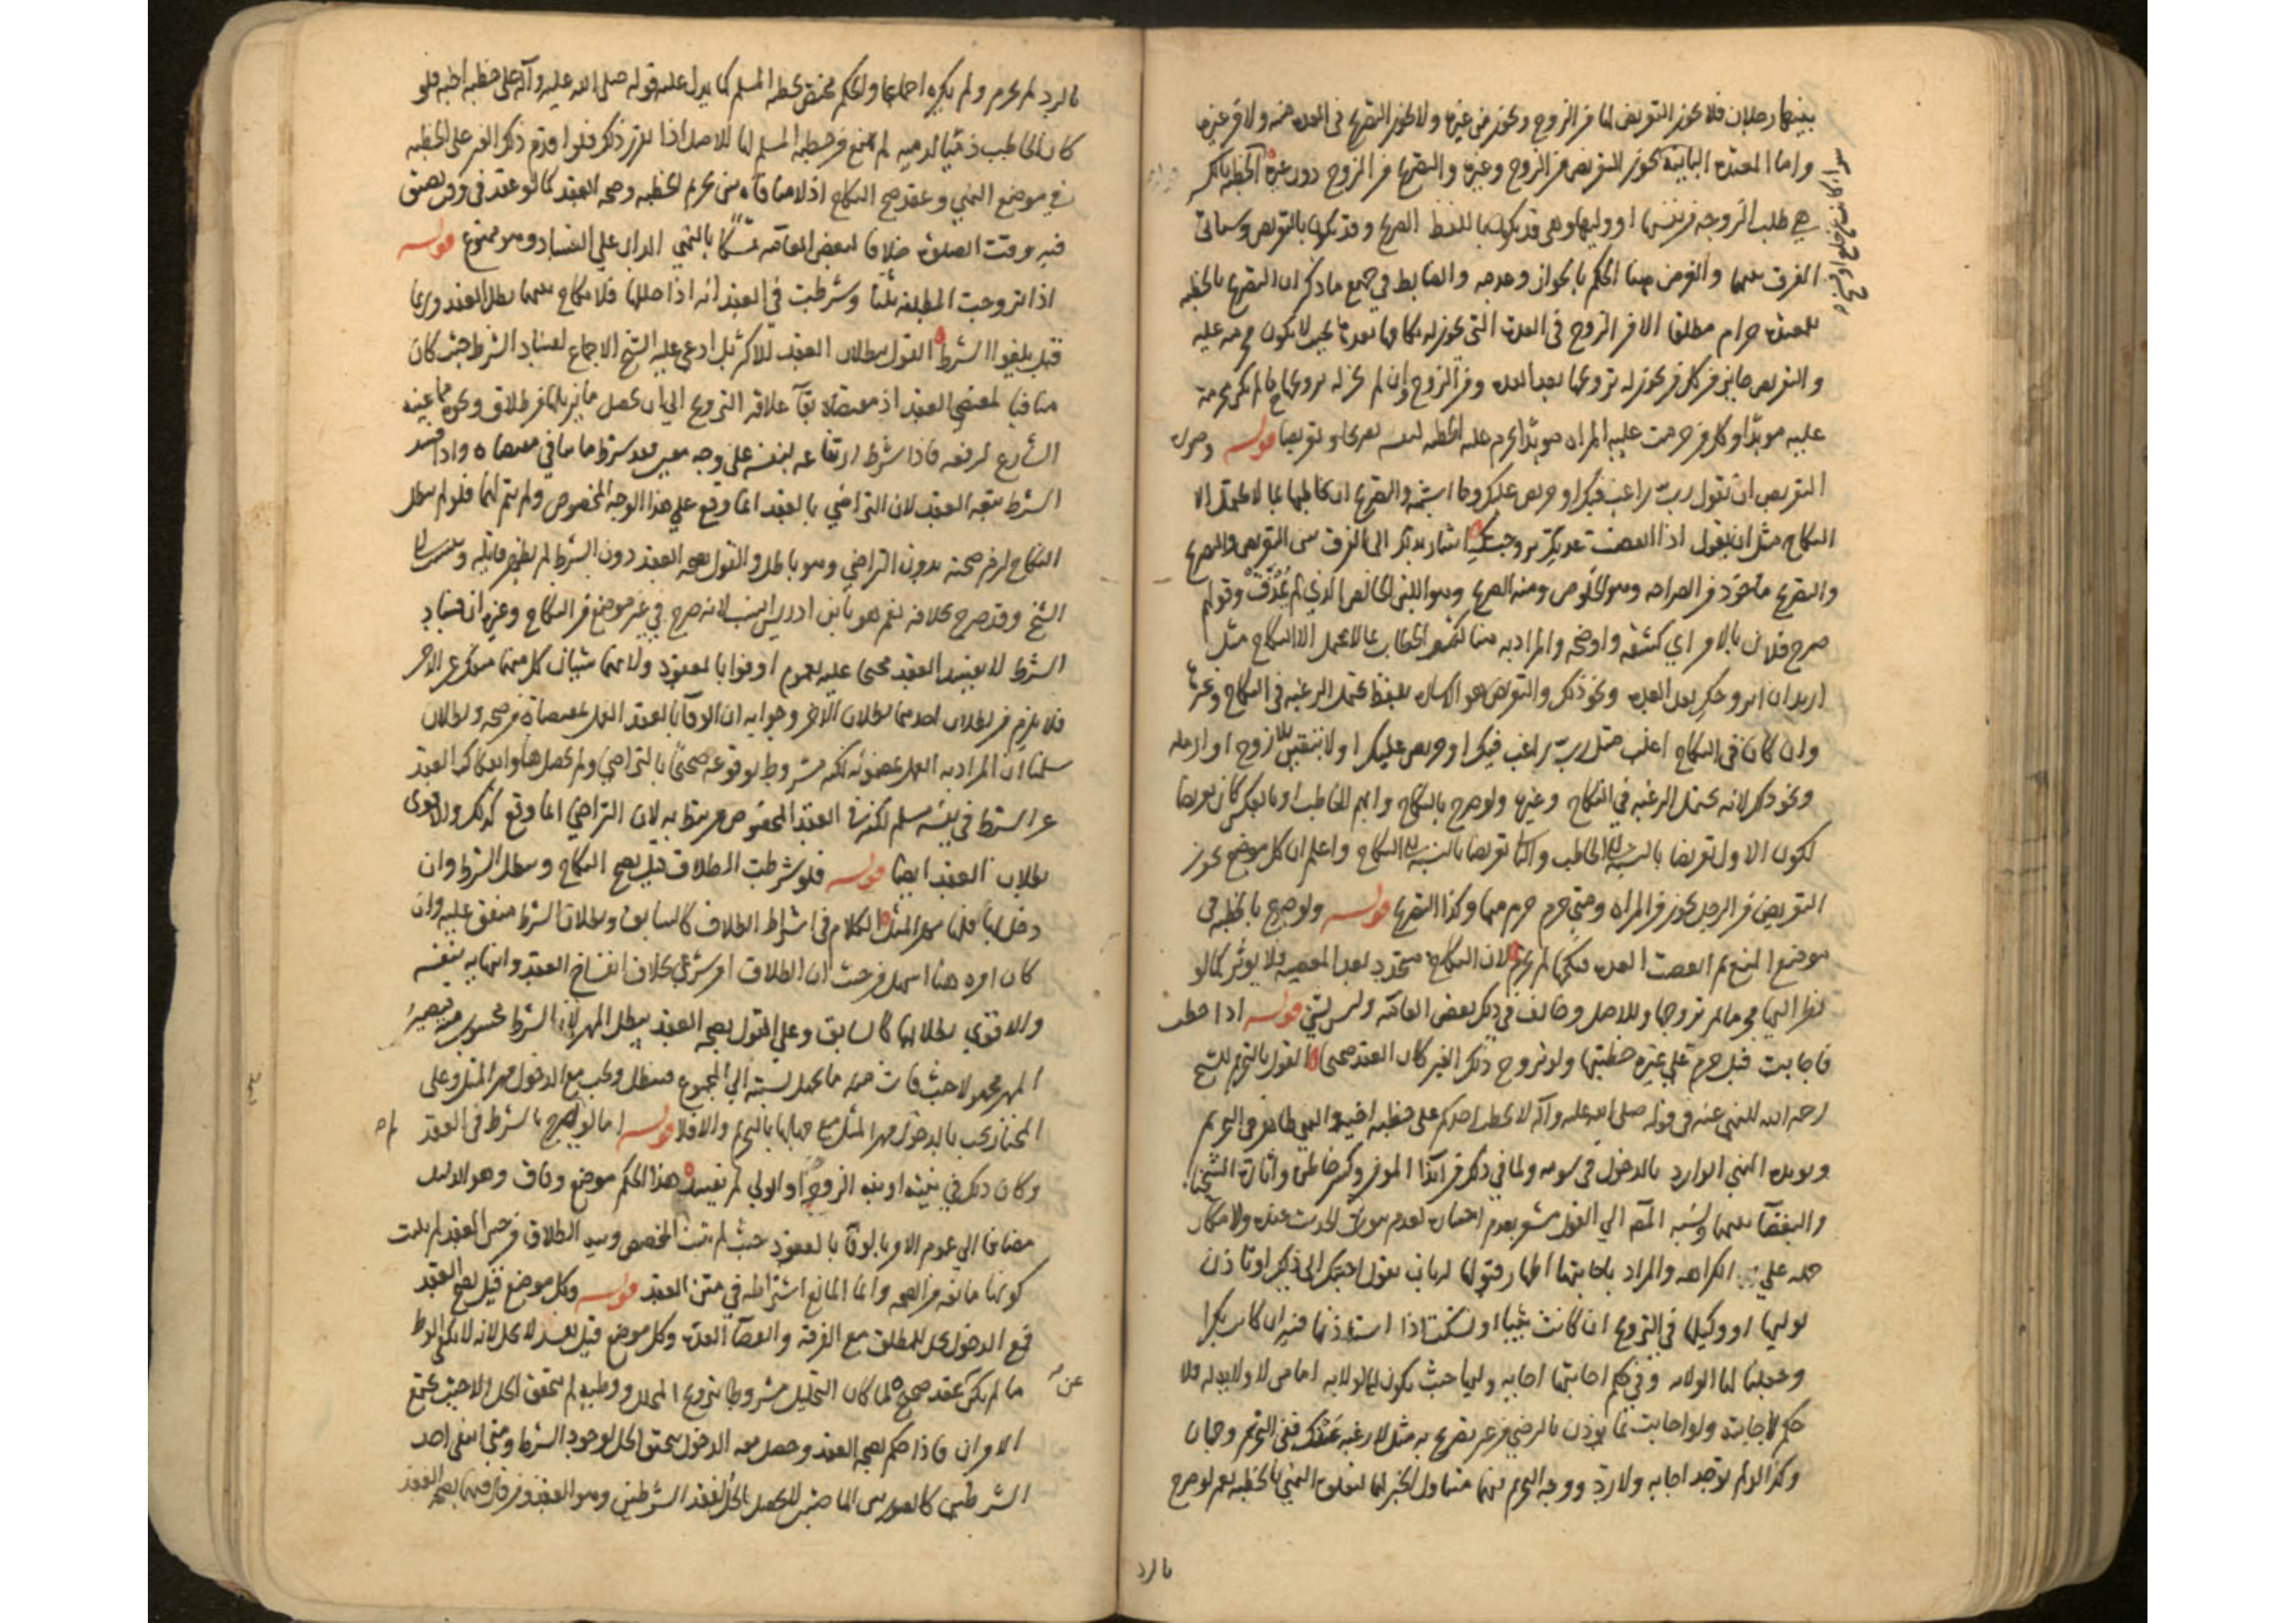 بينهما رجلان فلا يجوز التعريض لها من الزوج ويجوز من غيره ولا يجوز التصريح في العدة منه ولا من غيره
واما المعتدة البائنة فيجوز التعريض من الزوج وغيره والتصريح من الزوج دون غيره الخطبة بالكسر
هي طلب الزوجة من نفسها او وليها وهي قد يكون باللفظ الصريح وقد يكون بالتعريض وسياتي
الفرق بينهما والغرض هنا الحكم بالجواز وعدمه والضابط في جميع ما ذكر ان التصريح بالخطبة
للمعتدة حرام مطلقا الا من الزوج في العدة التي يجوز له نكاحها بعدها بحيث لا يكون محرمة عليه
والتعريض جايز من كل من يجوز له تزويجها بعد العدة ومن الزوج وان لم يجز له تزويجها ما لم يكن محرمة
عليه موبدا وكل من حرمت عليه المراه موبدا يحرم عليه الخطبة لنفسه تصريحا وتعريضا قوله وصورة
التعريض ان يقول رب راغب فيك او حريص عليك وما اشبهه والتصريح ان يخاطبها بما لا يحتمل الا
النكاح مثل ان يقول اذا انقضت عدتك تزوجتك اشار بذلك الى الفرق بين التعريض والتصريح
والتصريح ماخوذ من الصراحة وهو الخلوص ومنه الصريح وهو اللبن الخالص الذي لم يمذق وقولهم
صرح فلان بالامر اي كشفه واوضحه والمراد به هنا الخطاب بما لا يحتمل الا النكاح مثل
اريد ان اتزوجك بعد العدة ونحو ذلك والتعريض هو الاتيان بلفظ يحتمل الرغبة في النكاح وغيرها
وان كان في النكاح اغلب مثل رب راغب فيك او حريص عليك او لا تبقين بلا زوج او ارملة
ونحو ذلك لانه يحتمل الرغبة في النكاح وغيرها ولو صرح بالنكاح وابهم الخاطب او بالعكس كان تعريضا
لكون الاول تعريضا بالنسبة الى الخاطب والثاني تعريضا بالنسبة الى النكاح واعلم ان كل موضع يجوز
التعريض من الرجل يجوز من المراه ومتى حرم حرم منها وكذا التصريح قوله ولو صرح بالخطبة في
موضع المنع ثم انقضت العدة فنكحها لم يحرم لان النكاح متجدد بعد المعصية فلا يوثر كما لو
نظر اليها محرما ثم تزوجها وللاصل وخالف في ذلك بعض العامة وليس بشي قوله اذا خطب
فاجابت قيل حرم على غيره خطبتها ولو تزوج ذلك الغير كان العقد صحيحا القول بالتحريم للشيخ
رحمه الله للنهي عنه في قوله صلى الله عليه وآله لا يخطب احدكم على خطبة اخيه والنهي ظاهر في التحريم
ويويده النهي الوارد بالدخول في سومه ولما في ذلك من ايذا المومن وكسر خاطره واثارة الشحناء
والبغضاء بينهما ونسبة المصنف الى القول مشعر بعدم اختياره لعدم ثبوت الحديث عنده ولامكان
حمله على الكراهة والمراد باجابتها اظهار قبولها له بان يقول اجبتك الى ذلك او تاذن
لوليها او وكيلها في التزويج ان كانت ثيبا او تسكت اذا استاذنها فيه ان كانت بكرا
وجعلنا لها الولاية وفي حكم اجابتها اجابة وليها حيث يكون لها الولاية اما من لا ولاية له فلا
حكم لاجابته ولو اجابت بما يوذن بالرضى من غير تصريح به مثل لا رغبة عنك ففي التحريم وجهان
وكذا لو لم يوجد اجابة ولا رد ووجه التحريم فيهما متناول الخبر لها لتعلق النهي بالخطبة نعم لو صرح
بالرد
بالرد لم يحرم ولم يكره اجماعا والحكم مختص بخطبة المسلم كما يدل عليه قوله صلى الله عليه وآله على خطبة اخيه فلو
كان الخاطب ذميا لذمية لم يمنع من خطبة المسلم لها للاصل اذا تقرر ذلك فلو اقدم ذلك الغير على الخطبة
في موضع النهي وعقد صح النكاح اذ لا منافاه بين تحريم الخطبة وصحة العقد كما لو عقد في وقت تضيق
فيه وقت الصلوة خلافا لبعض العامة تمسكا بالنهي الدال على الفساد وهو ممنوع قوله
اذا تزوجت المطلقة ثلثا وشرطت في العقد انه اذا حللها فلا نكاح بينهما بطل العقد وربما
قيل يلغو الشرط القول ببطلان العقد للاكثر بل ادعى عليه الشيخ الاجماع لفساد الشرط حيث كان
منافيا لمقتضى العقد اذ مقتضاه بقاء علاقة التزويج الى ان يحصل ما يزيلها من طلاق ونحوه مما عينه
الشارع لرفعه فاذا شرط ارتفاعه بنفسه على وجه معين بعد شرط ما ينافي مقتضاه واذا فسد
الشرط تبعه العقد لان التراضي بالعقد انما وقع على هذا الوجه المخصوص ولم يتم لهما فلو لم يبطل
النكاح لزم صحته بدون التراضي وهو باطل والقول بصحة العقد دون الشرط لم يظهر قايله ونسب الى
الشيخ وقد صرح بخلافه نعم هو لابن ادريس انسب لانه صرح في غير موضع من النكاح وغيره ان فساد
الشرط لا يفسد العقد محتجا عليه بعموم اوفوا بالعقود ولانهما شيئان كل منهما منفك عن الاخر
فلا يلزم من بطلان احدهما بطلان الاخر وجوابه ان الوفا بالعقد العمل بمقتضاه من صحة وبطلان
سلمنا ان المراد به العمل بمضمونه لكنه مشروط بوقوعه صحيحا بالتراضي ولم يحصل هنا وانفكاك العقد
عن الشرط في نفسه مسلم لكنه في العقد المخصوص مرتبط به لان التراضي انما وقع كذلك والاقوى
بطلان العقد ايضا قوله فلو شرطت الطلاق قيل يصح النكاح ويبطل الشرط وان
دخل بها فلها مهر المثل الكلام في اشتراط الطلاق كالسابق وبطلان الشرط متفق عليه وان
كان امره هنا اسهل من حيث ان الطلاق امر شرعي بخلاف انفساخ العقد وانتهائه بنفسه
والاقوى بطلانهما كالسابق وعلى القول بصحة العقد يبطل المهر لان الشرط محسوب منه فيصير
المهر مجهولا حيث فات منه ما يجهل نسبته الى المجموع فيبطل ويجب مع الدخول مهر المثل وعلى
المختار يجب بالدخول مهر المثل مع جهلها بالتحريم والا فلا قوله اما لو لم يصرح بالشرط في العقد
وكان ذلك في نيته او نية الزوجة او الولي لم يفسد هذا الحكم موضع وفاق وهو الدليل
مضافا الى عموم الامر بالوفاء بالعقود حيث لم يثبت المخصص ونية الطلاق من حين العقد لم يثبت
كونها مانعة من الصحة وانما المانع اشتراطه في متن العقد قوله وكل موضع قيل يصح العقد
فمع الدخول تحل للمطلق مع الفرقة وانقضاء العدة وكل موضع قيل يفسد لا تحل لانه لا يكفي الوطء
ما لم يكن عن عقد صحيح لما كان التحليل مشروطا بتزويج المحلل ووطيه لم يتحقق الحل الا حيث يجتمع
الامران فاذا حكم بصحة العقد وحصل معه الدخول تحقق الحل لوجود الشرط ومتى انتفى احد
الشرطين كالصورتين الماضيتين لا يحصل الحل لفقد الشرطين وهو العقد ومن قال فيهما بصحة العقد